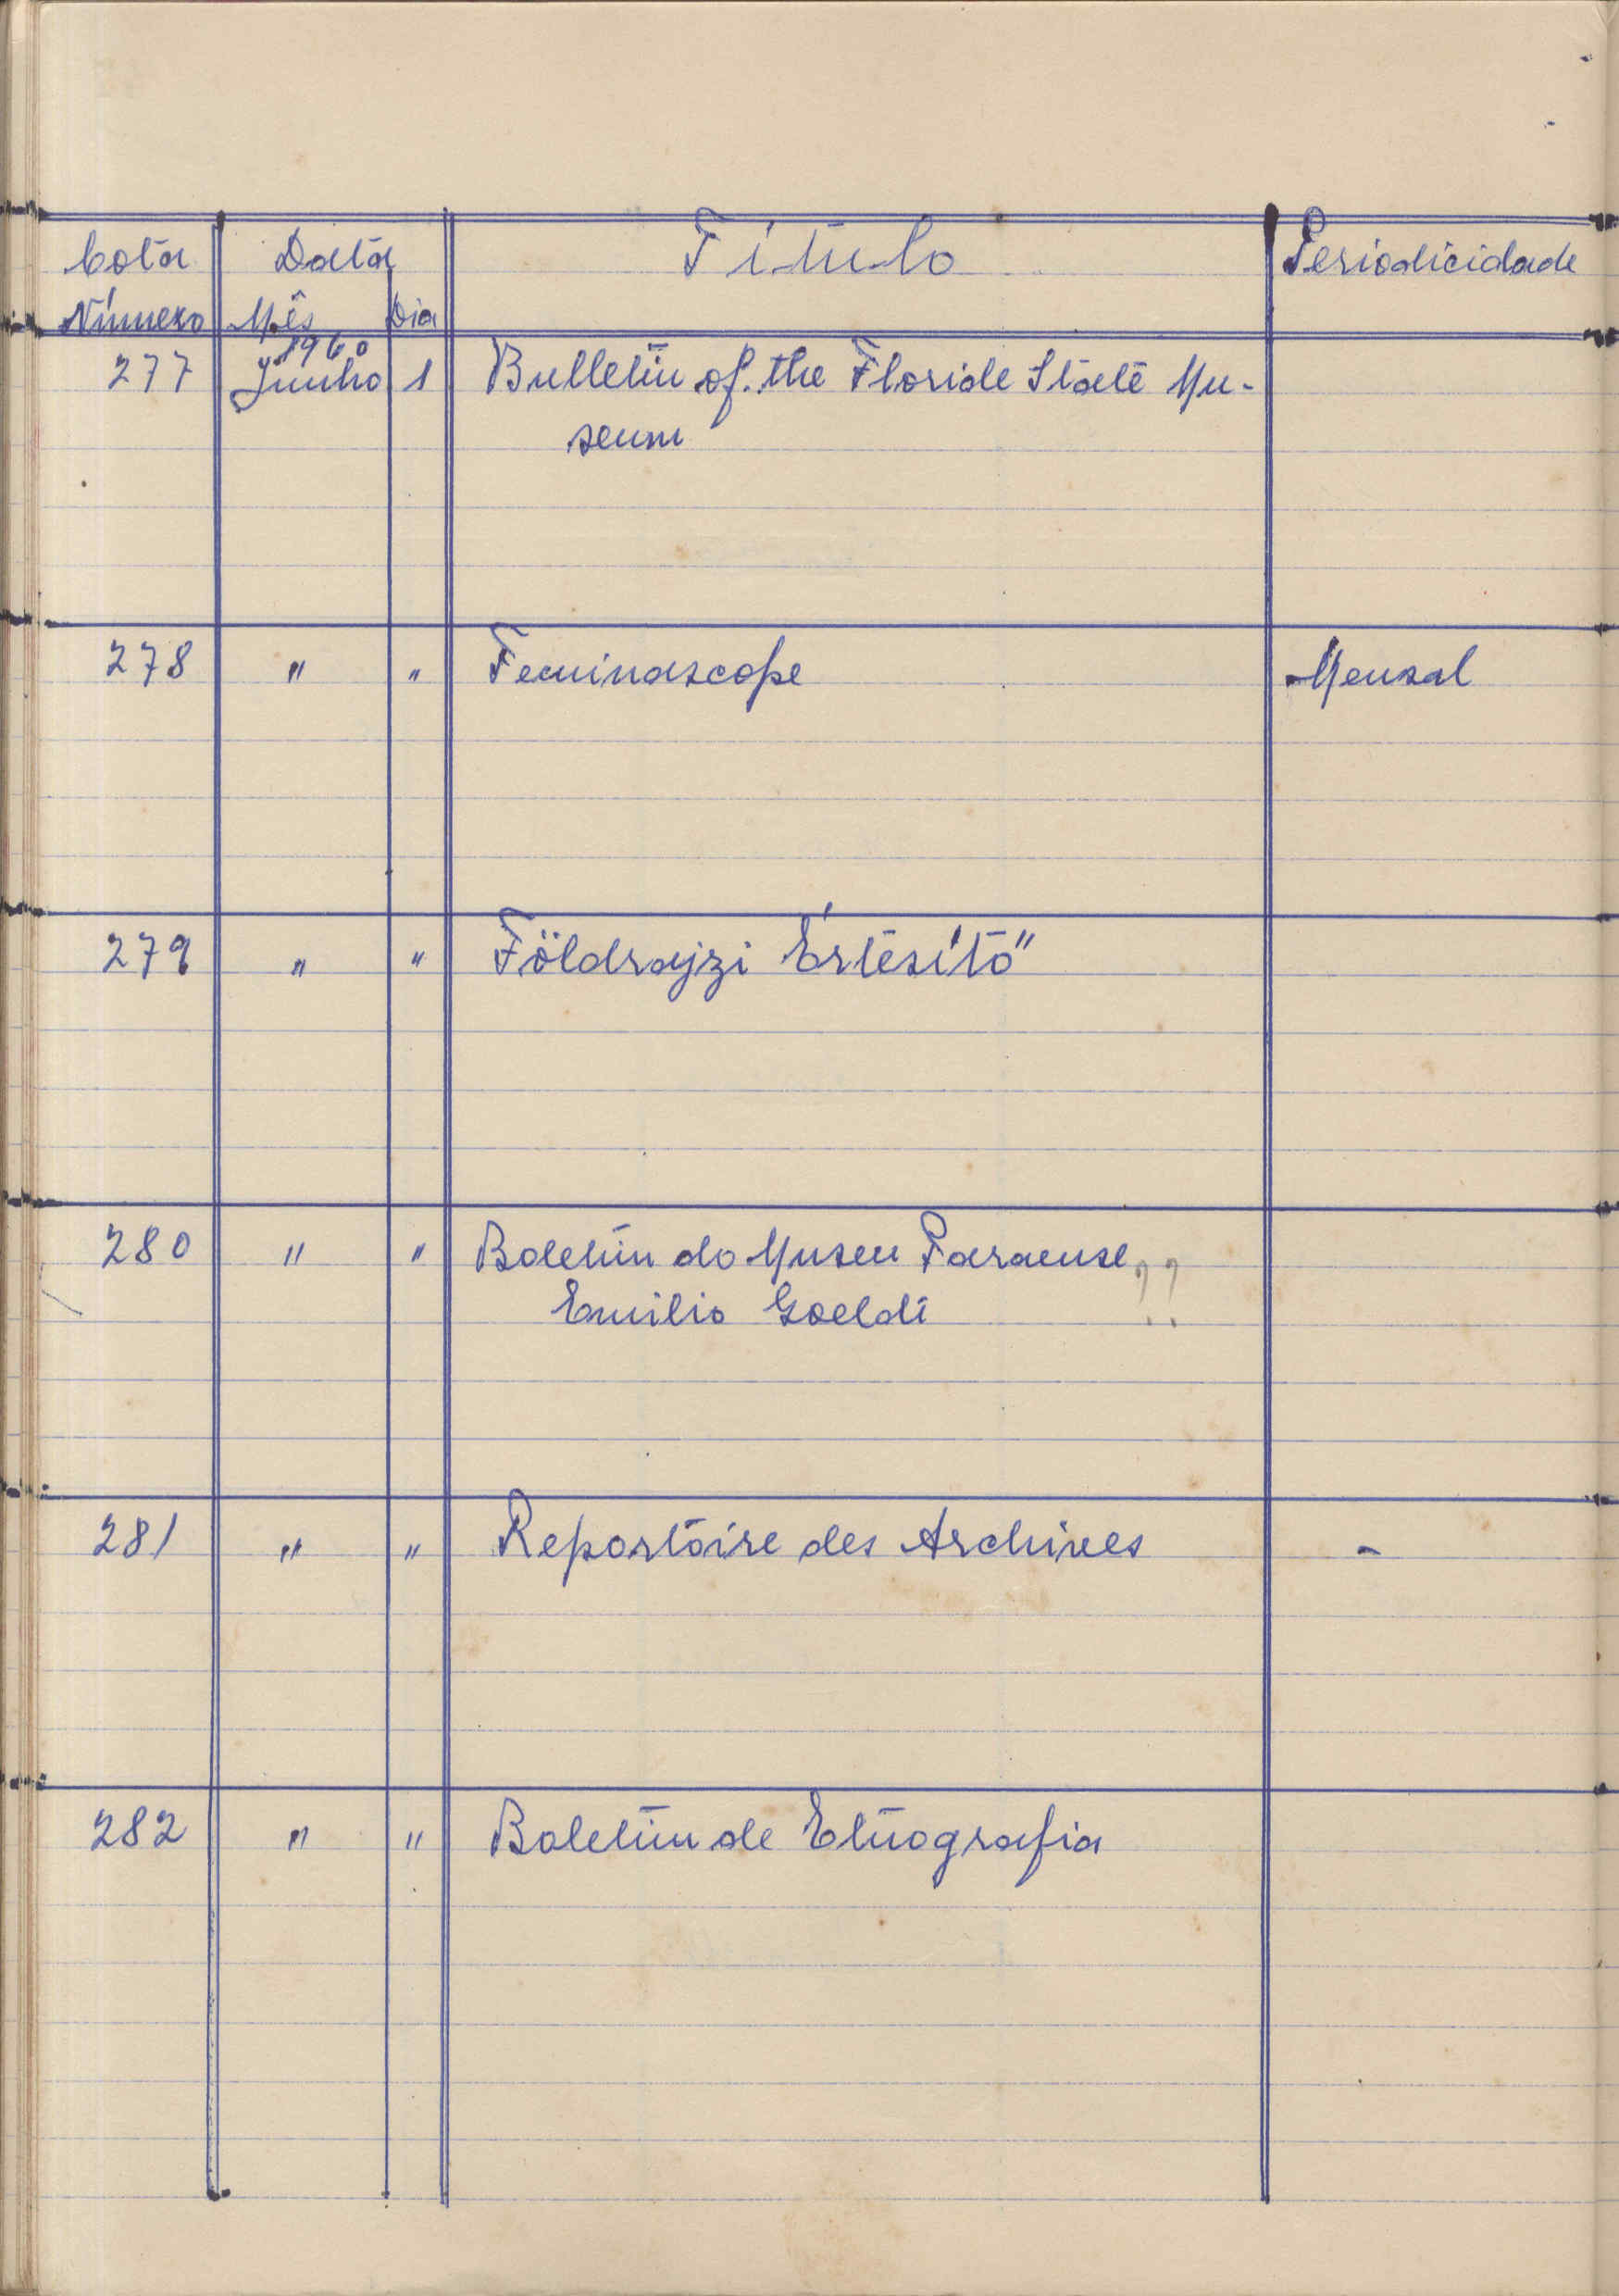 Cota Data Título Periodicidade
Número Mês Dia
1960
277 Junho 1 Bulletin of. the Floride State Mu-
seum
278 " " Feminascope Mensal
279 " " Földrajzi Értésitő
280 " " Boletim do Museu Paraense ??
Emilio Goeldi
281 " " Reportoire des Archives -
282 " " Boletim de Etnografia